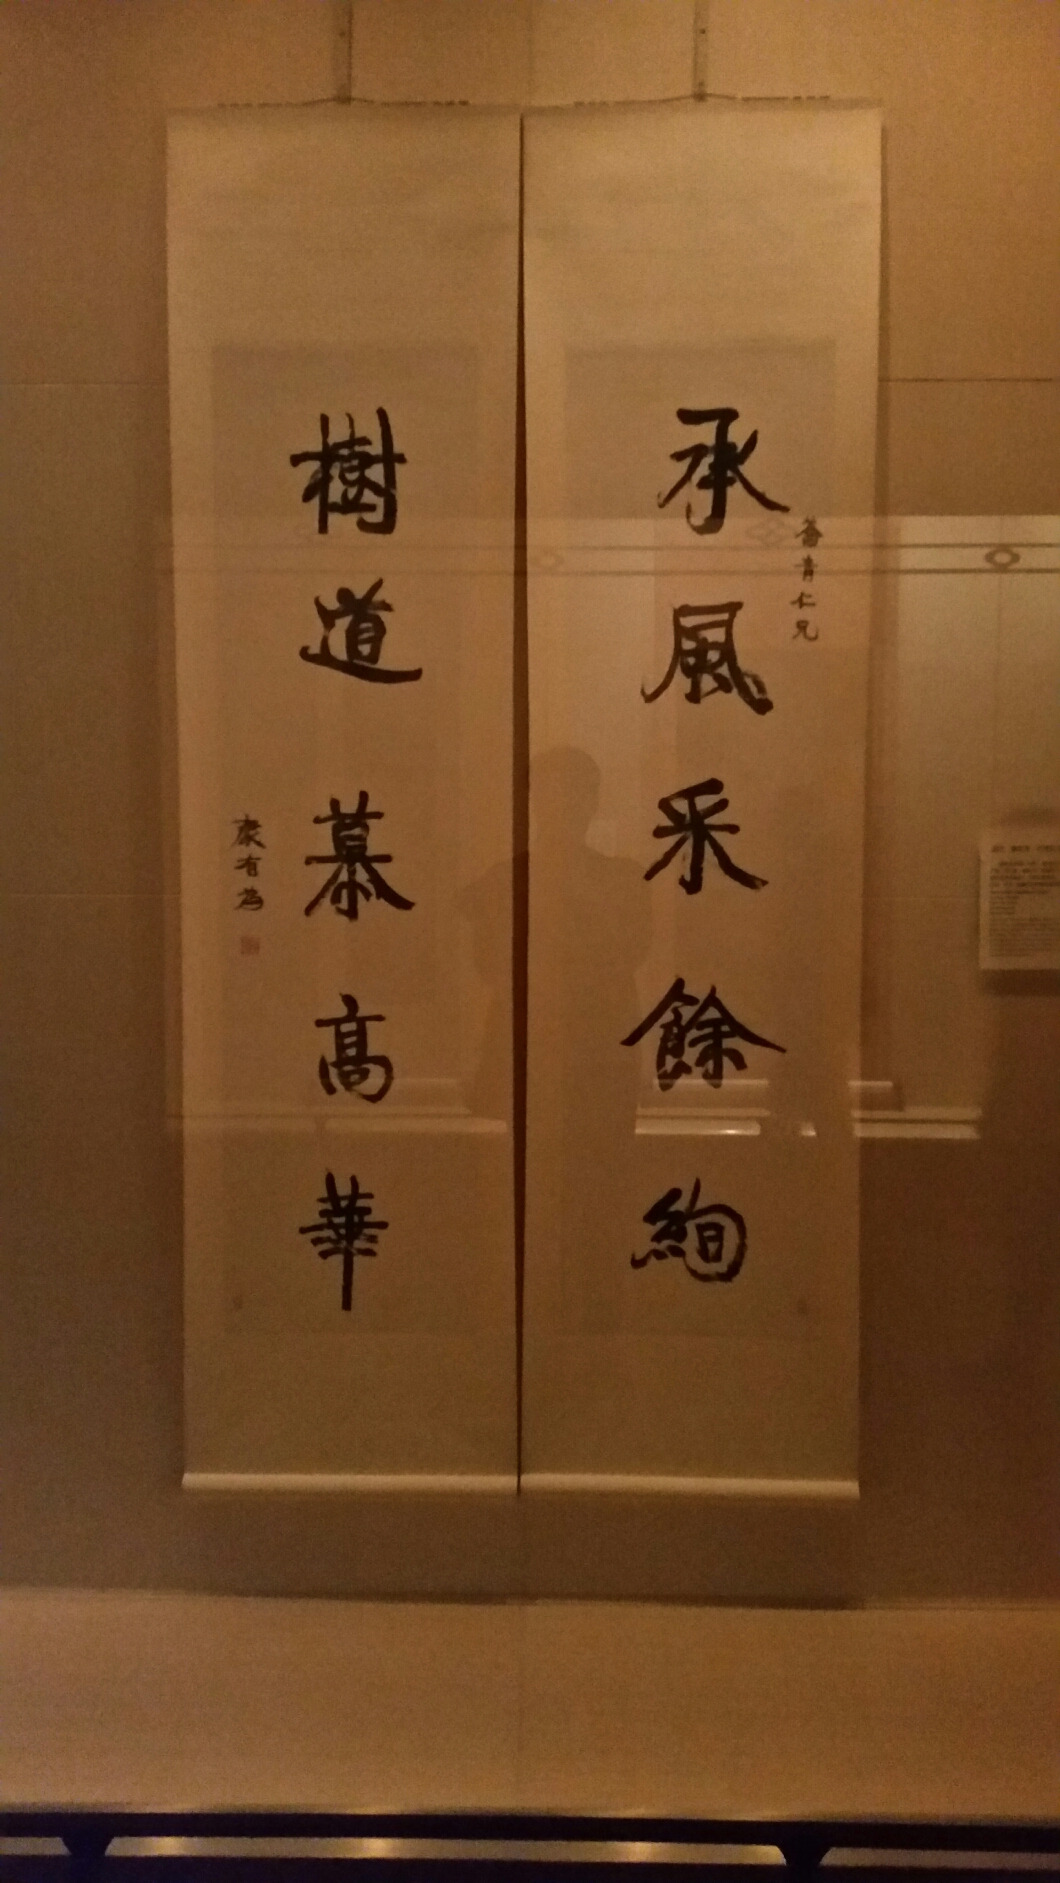 承風采餘絢
青仁兄
樹道慕高華
康有為